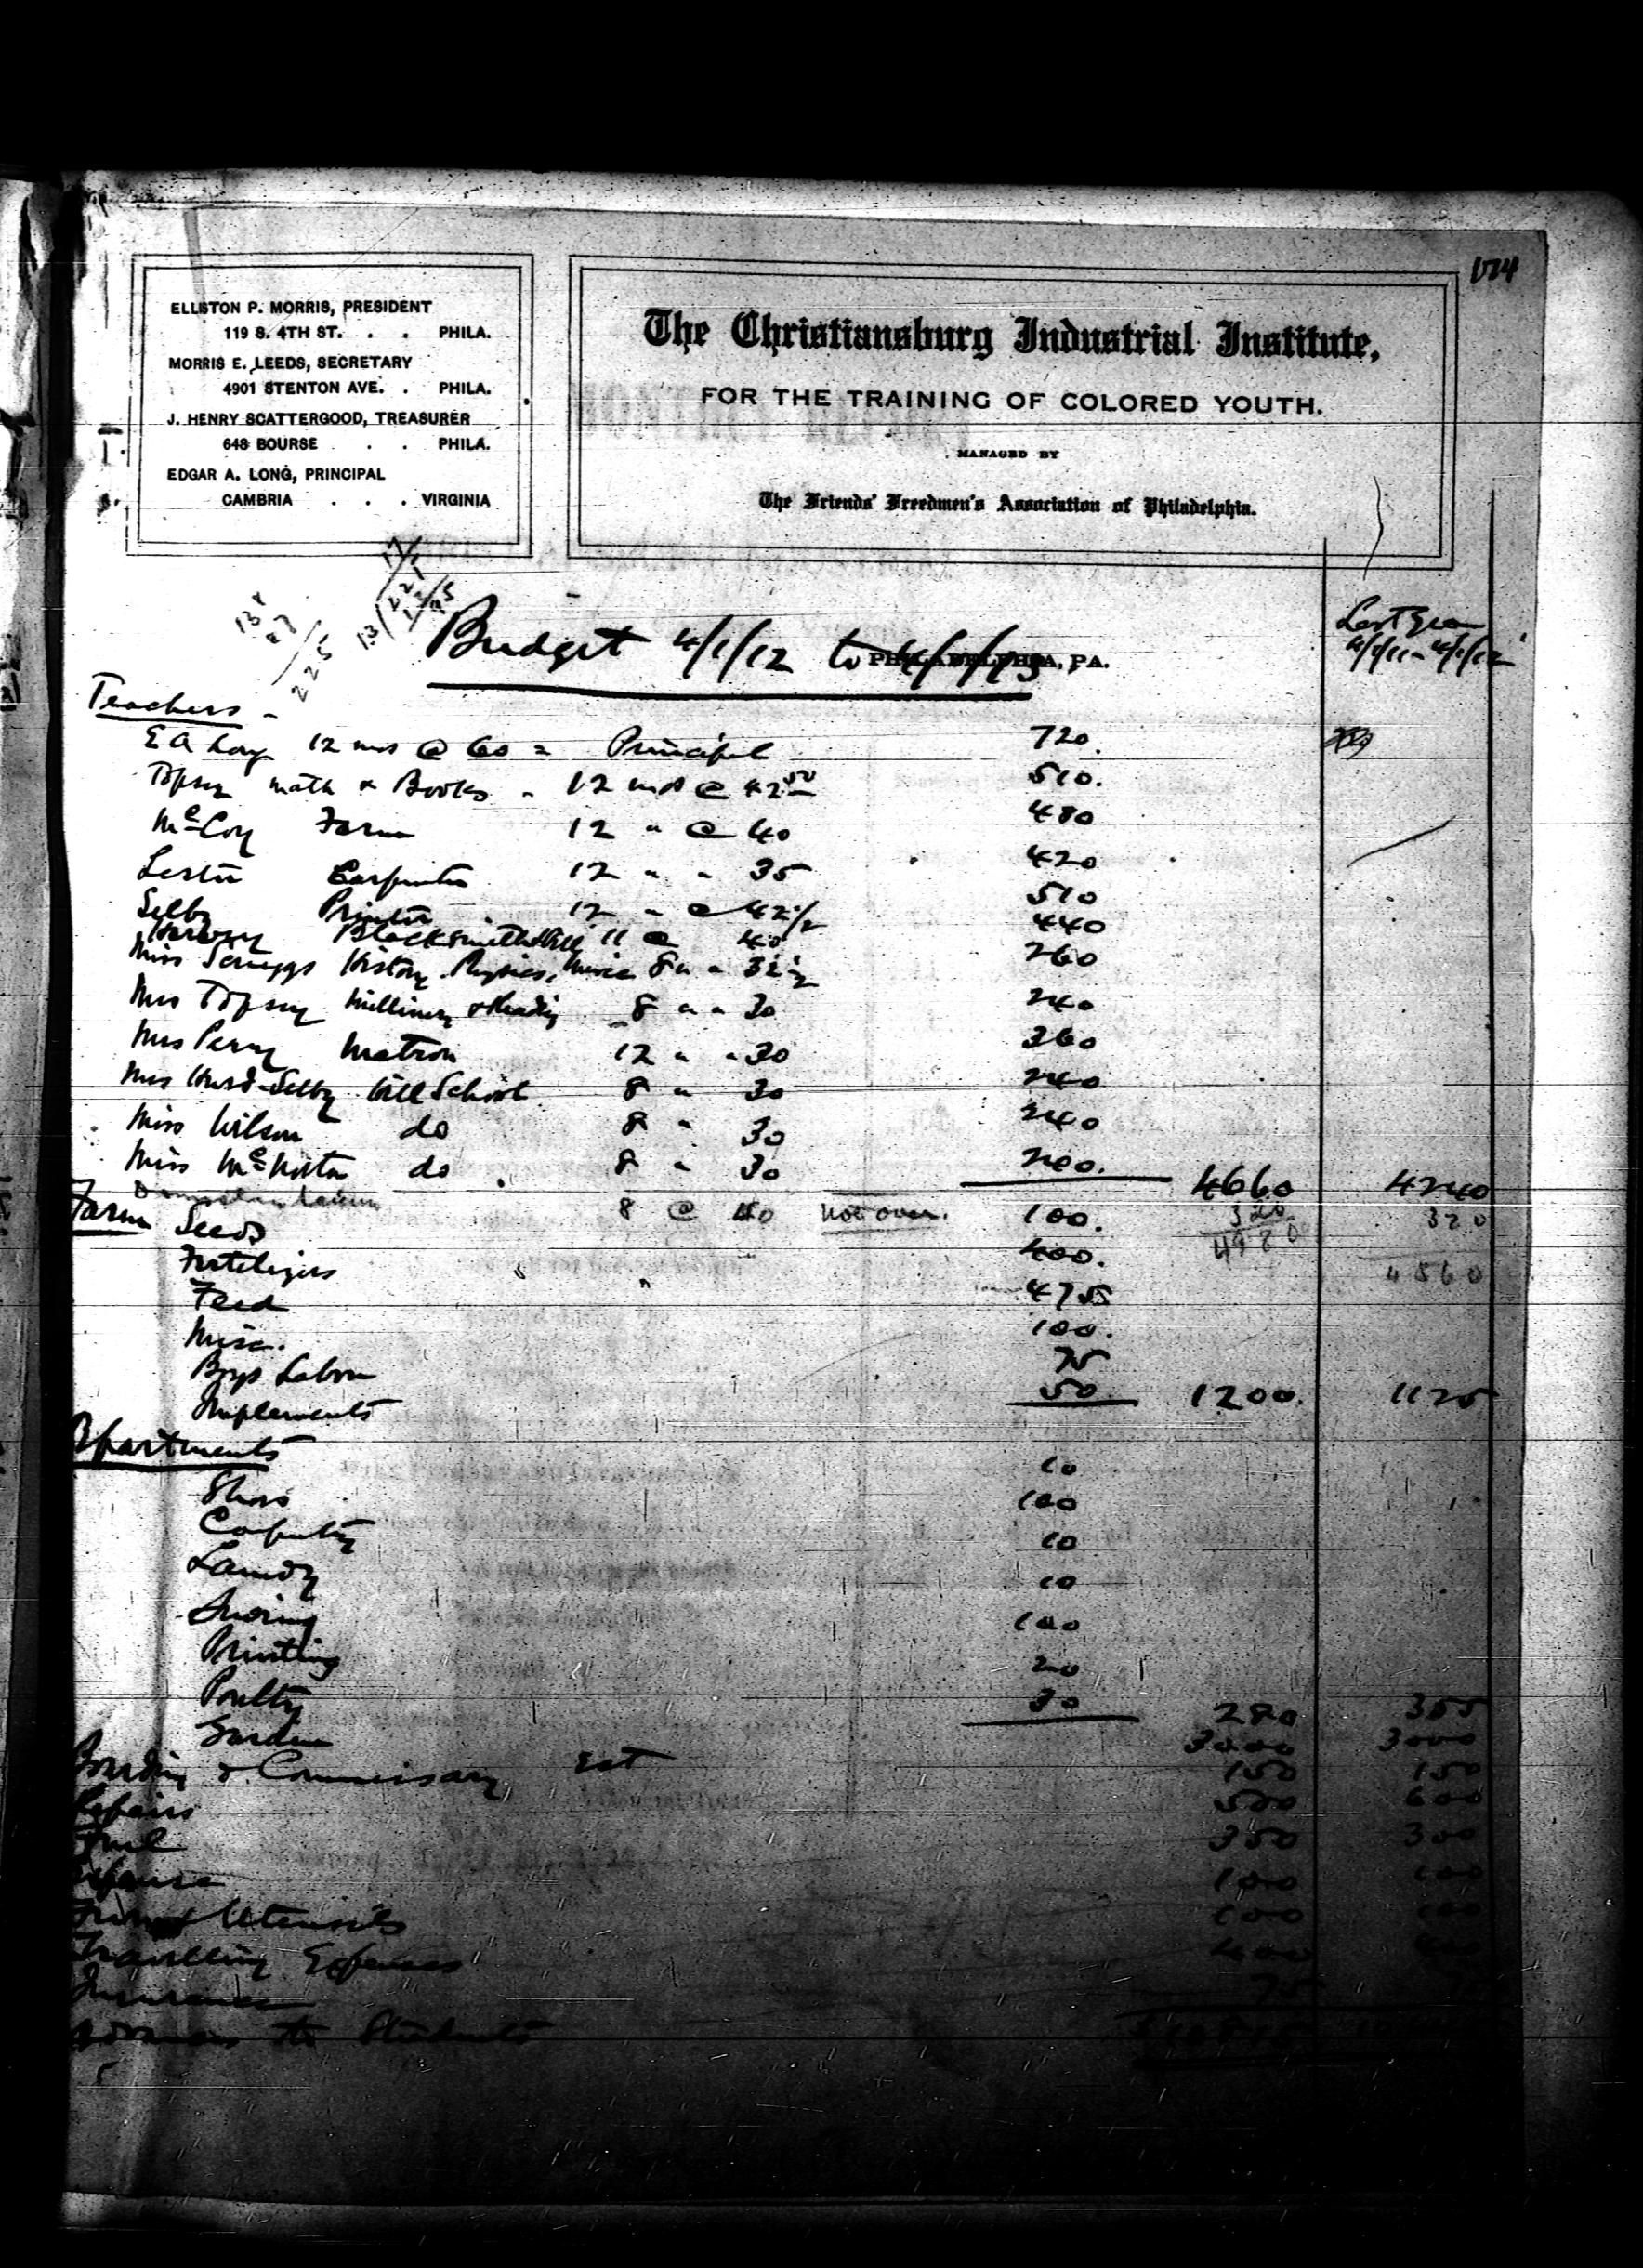 174
ELLISTON P. MORRIS, PRESIDENT
119 S. 4TH ST. . . PHILA.
MORRIS E. LEEDS, SECRETARY
4901 STENTON AVE. . PHILA.
J. HENRY SCATTERGOOD, TREASURER
648 BOURSE . . PHILA.
EDGAR A. LONG, PRINCIPAL
CAMBRIA . . . VIRGINIA
The Christiansburg Industrial Institute,
FOR THE TRAINING OF COLORED YOUTH.
MANAGED BY
The Friends' Freedmen's Association of Philadelphia.
Budget 4/1/12 to 4/1/13
PHILADELPHIA, PA.
Last Year
4/1/11-4/1/12
225
Teachers -
E A Long 12 mos @ 60 = Principal 720.
Topsy math & Books - 12 mos @ 42 50 510.
McCoy Farm 12 " @ 40 480
Lester Carpenter 12 " " 35 420
Selby Printer 12 " @ 42 1/2 510
Blacksmith 11 @ 40 440
Miss Scruggs History, Physics, Music 8 " " 32 1/2 260
Mrs Topsy Millinery & Reading 8 " " 30 240
Mrs Perry Matron 12 " " 30 360
Mrs Hurd-Selby Hill School 8 " 30 240
Miss Wilson do 8 " 30 240
Miss do 8 " 30 240. 4660 4240
8 @ 40 not over. 320 320
4980 4560
Farm Seeds 100.
Fertilizers 400.
Feed 475
Misc. 100.
Boys Labor 75
Implements 50 1200. 1125
Apartments
Shoes 10
Carpentry 100
Laundry 10
Sewing 10
Printing 100
Poultry 20
Garden 30 280 355
Boarding & Commissary Est 3000 3000
Repairs 150 150
Fuel 500 600
Expense 350 300
Furn & Utensils 100 100
Travelling Expenses 100 100
Insurance 400
to Students 75